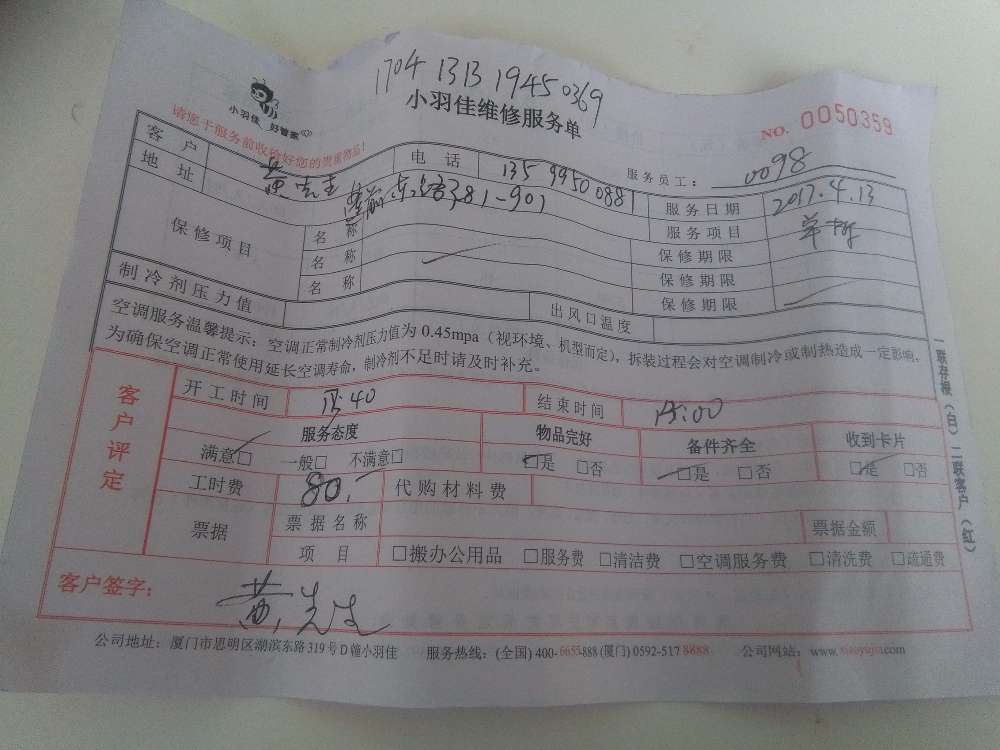 1704 1313 19450369
小羽佳 好管家
小羽佳维修服务单
NO. 0050359
请您于服务前收拾好您的贵重物品!
服务员工: 0098
客户 黄先生 电话 135 9950 0881 服务日期 2017.4.13
地址 381-901 服务项目 单拆
保修项目 名称 保修期限
名称 保修期限
名称 保修期限
制冷剂压力值 出风口温度
空调服务温馨提示:空调正常制冷剂压力值为 0.45mpa(视环境、机型而定),拆装过程会对空调制冷或制热造成一定影响,
为确保空调正常使用延长空调寿命,制冷剂不足时请及时补充。
客户评定
开工时间 40 结束时间 :00
服务态度 物品完好 备件齐全 收到卡片
满意□ 一般□ 不满意□ □是 □否 □是 □否 □是 □否
工时费 80.- 代购材料费
票据 票据名称 票据金额
项目 □搬办公用品 □服务费 □清洁费 □空调服务费 □清洗费 □疏通费
客户签字: 黄先生
公司地址:厦门市思明区湖滨东路319号D幢小羽佳 服务热线:(全国) 400-6655-888 (厦门) 0592-517 8888 公司网站:www.xiaoyujia.com
一联存根(白)二联客户(红)